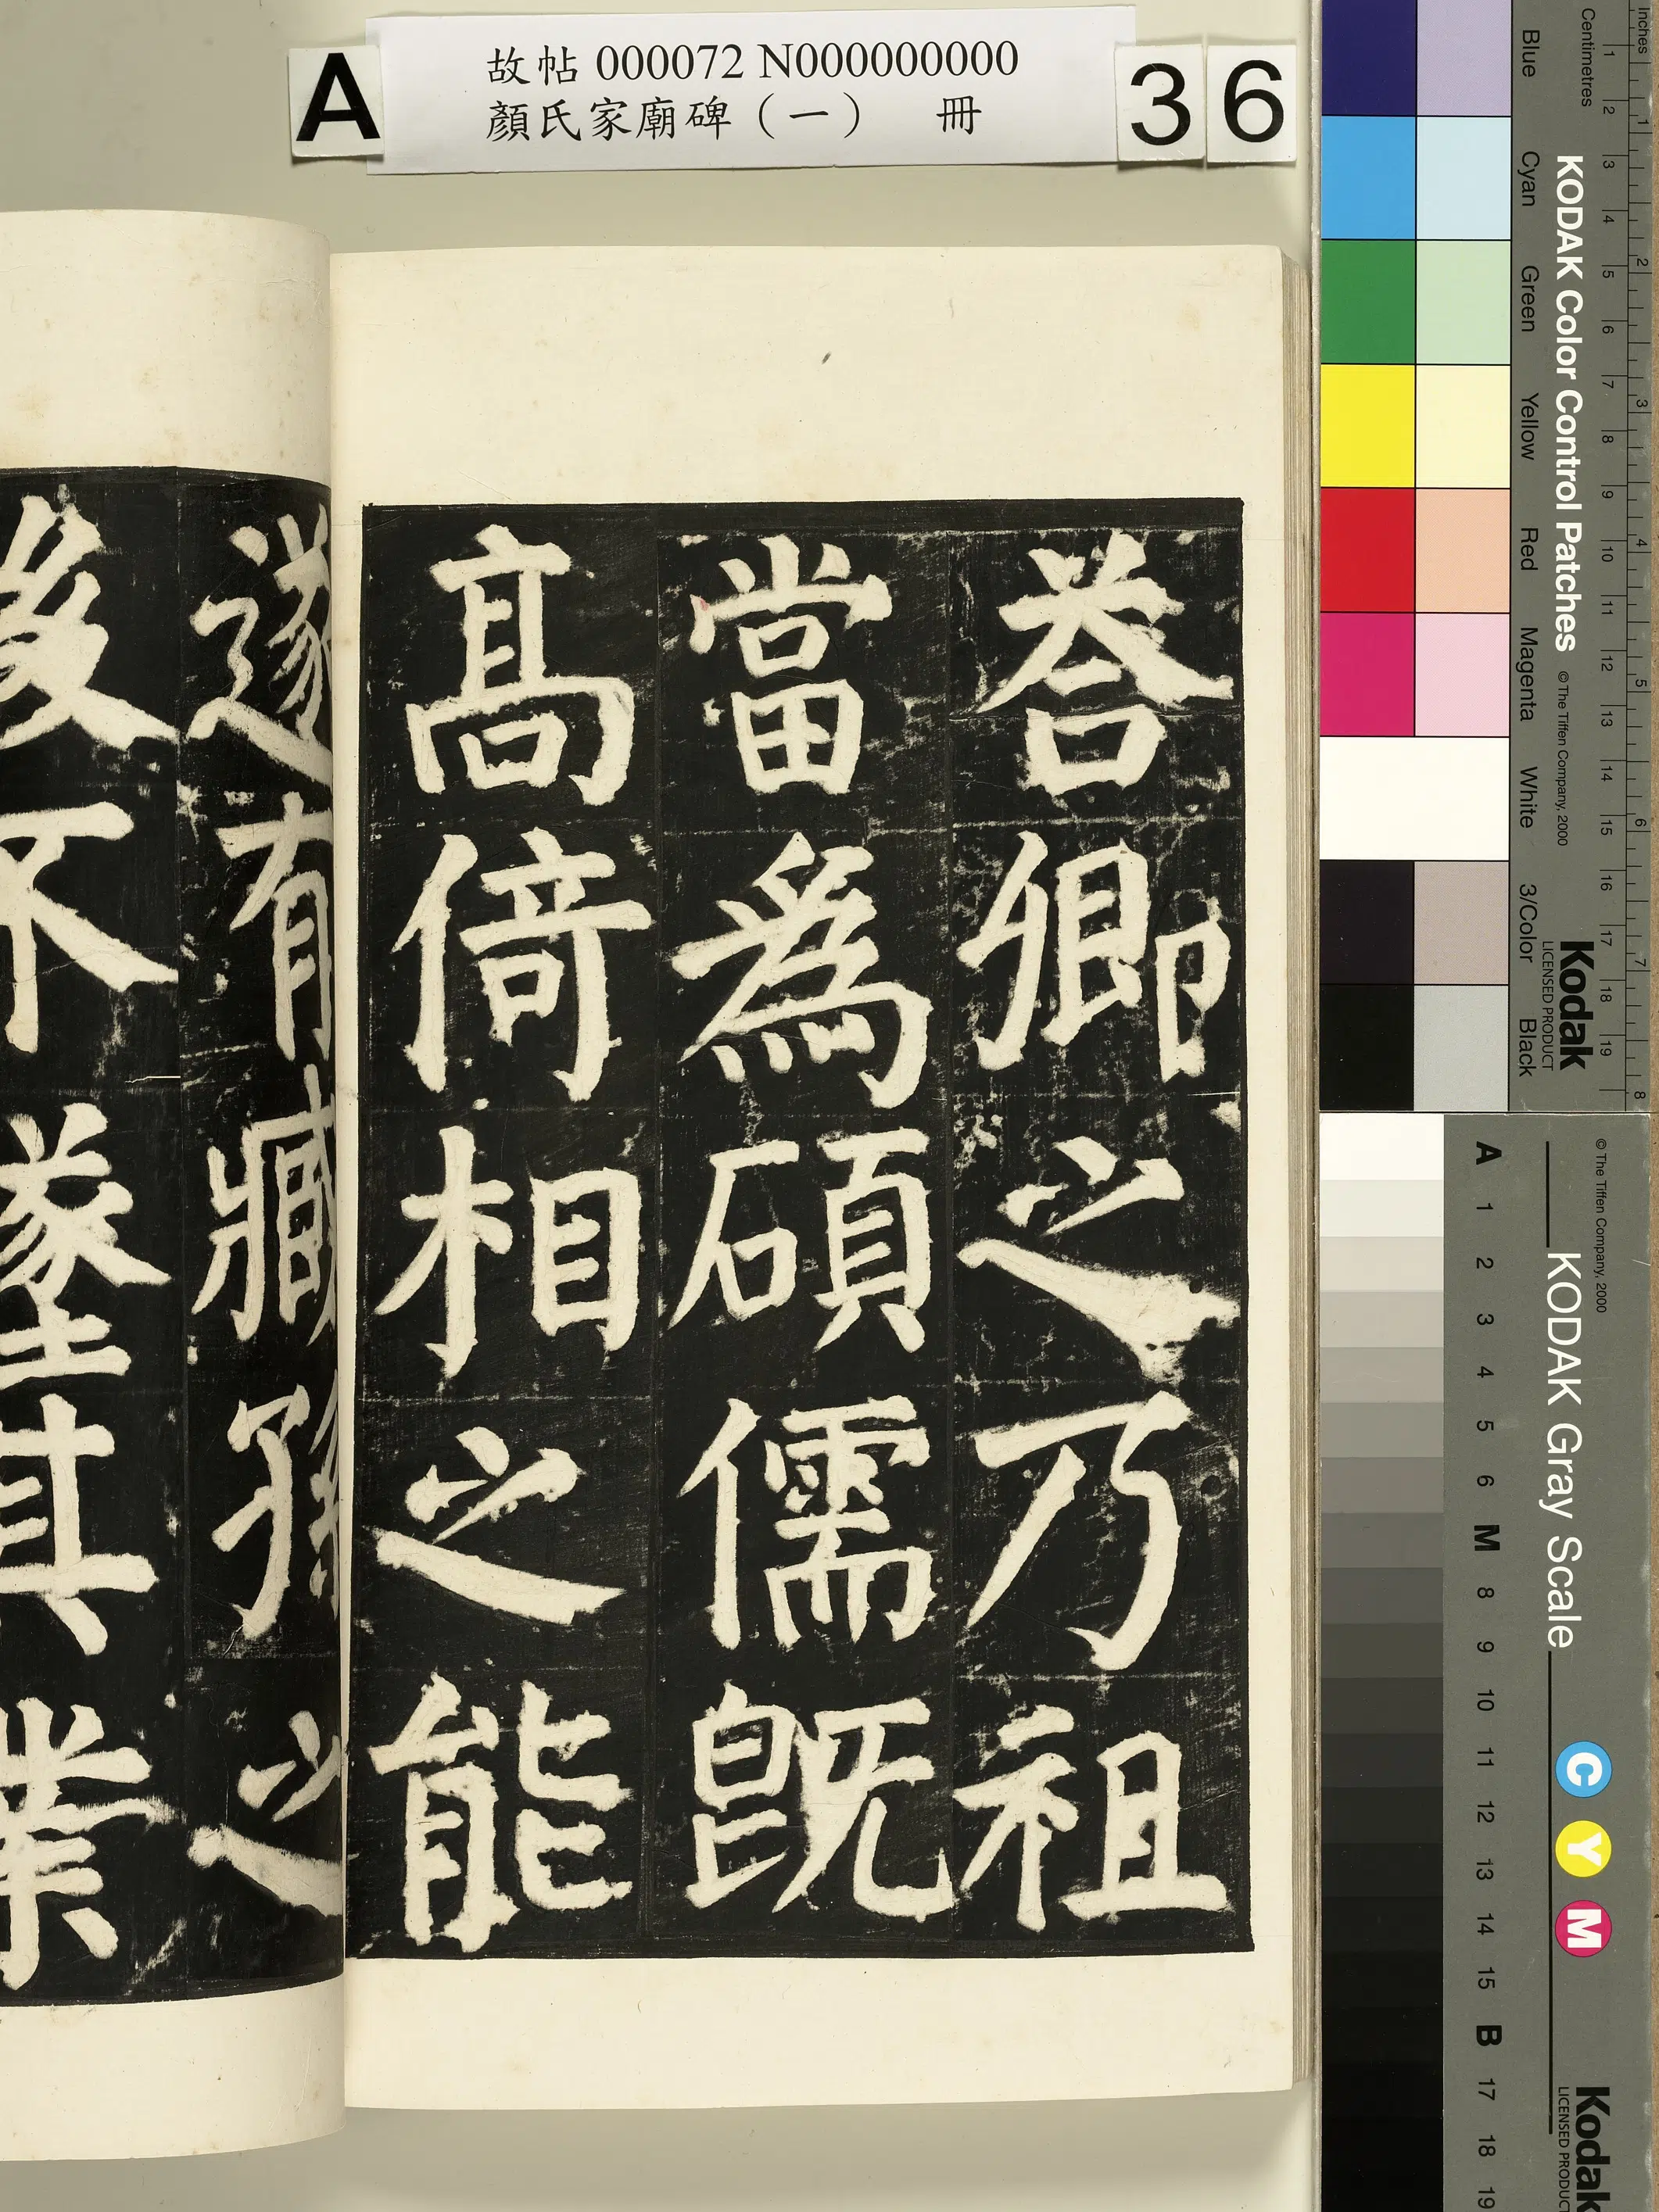 A
故帖 000072 N000000000
顏氏家廟碑（一） 冊
36
荅卿之乃祖
當爲碩儒旣
髙倚相之能
遂有臧孫之
後不墜其業
Inches 1 2 3 4 5 6 7 8
Centimetres 1 2 3 4 5 6 7 8 9 10 11 12 13 14 15 16 17 18 19
KODAK Color Control Patches
© The Tiffen Company, 2000
Kodak
LICENSED PRODUCT
Blue Cyan Green Yellow Red Magenta White 3/Color Black
© The Tiffen Company, 2000
KODAK Gray Scale
C Y M
Kodak
LICENSED PRODUCT
A 1 2 3 4 5 6 M 8 9 10 11 12 13 14 15 B 17 18 19